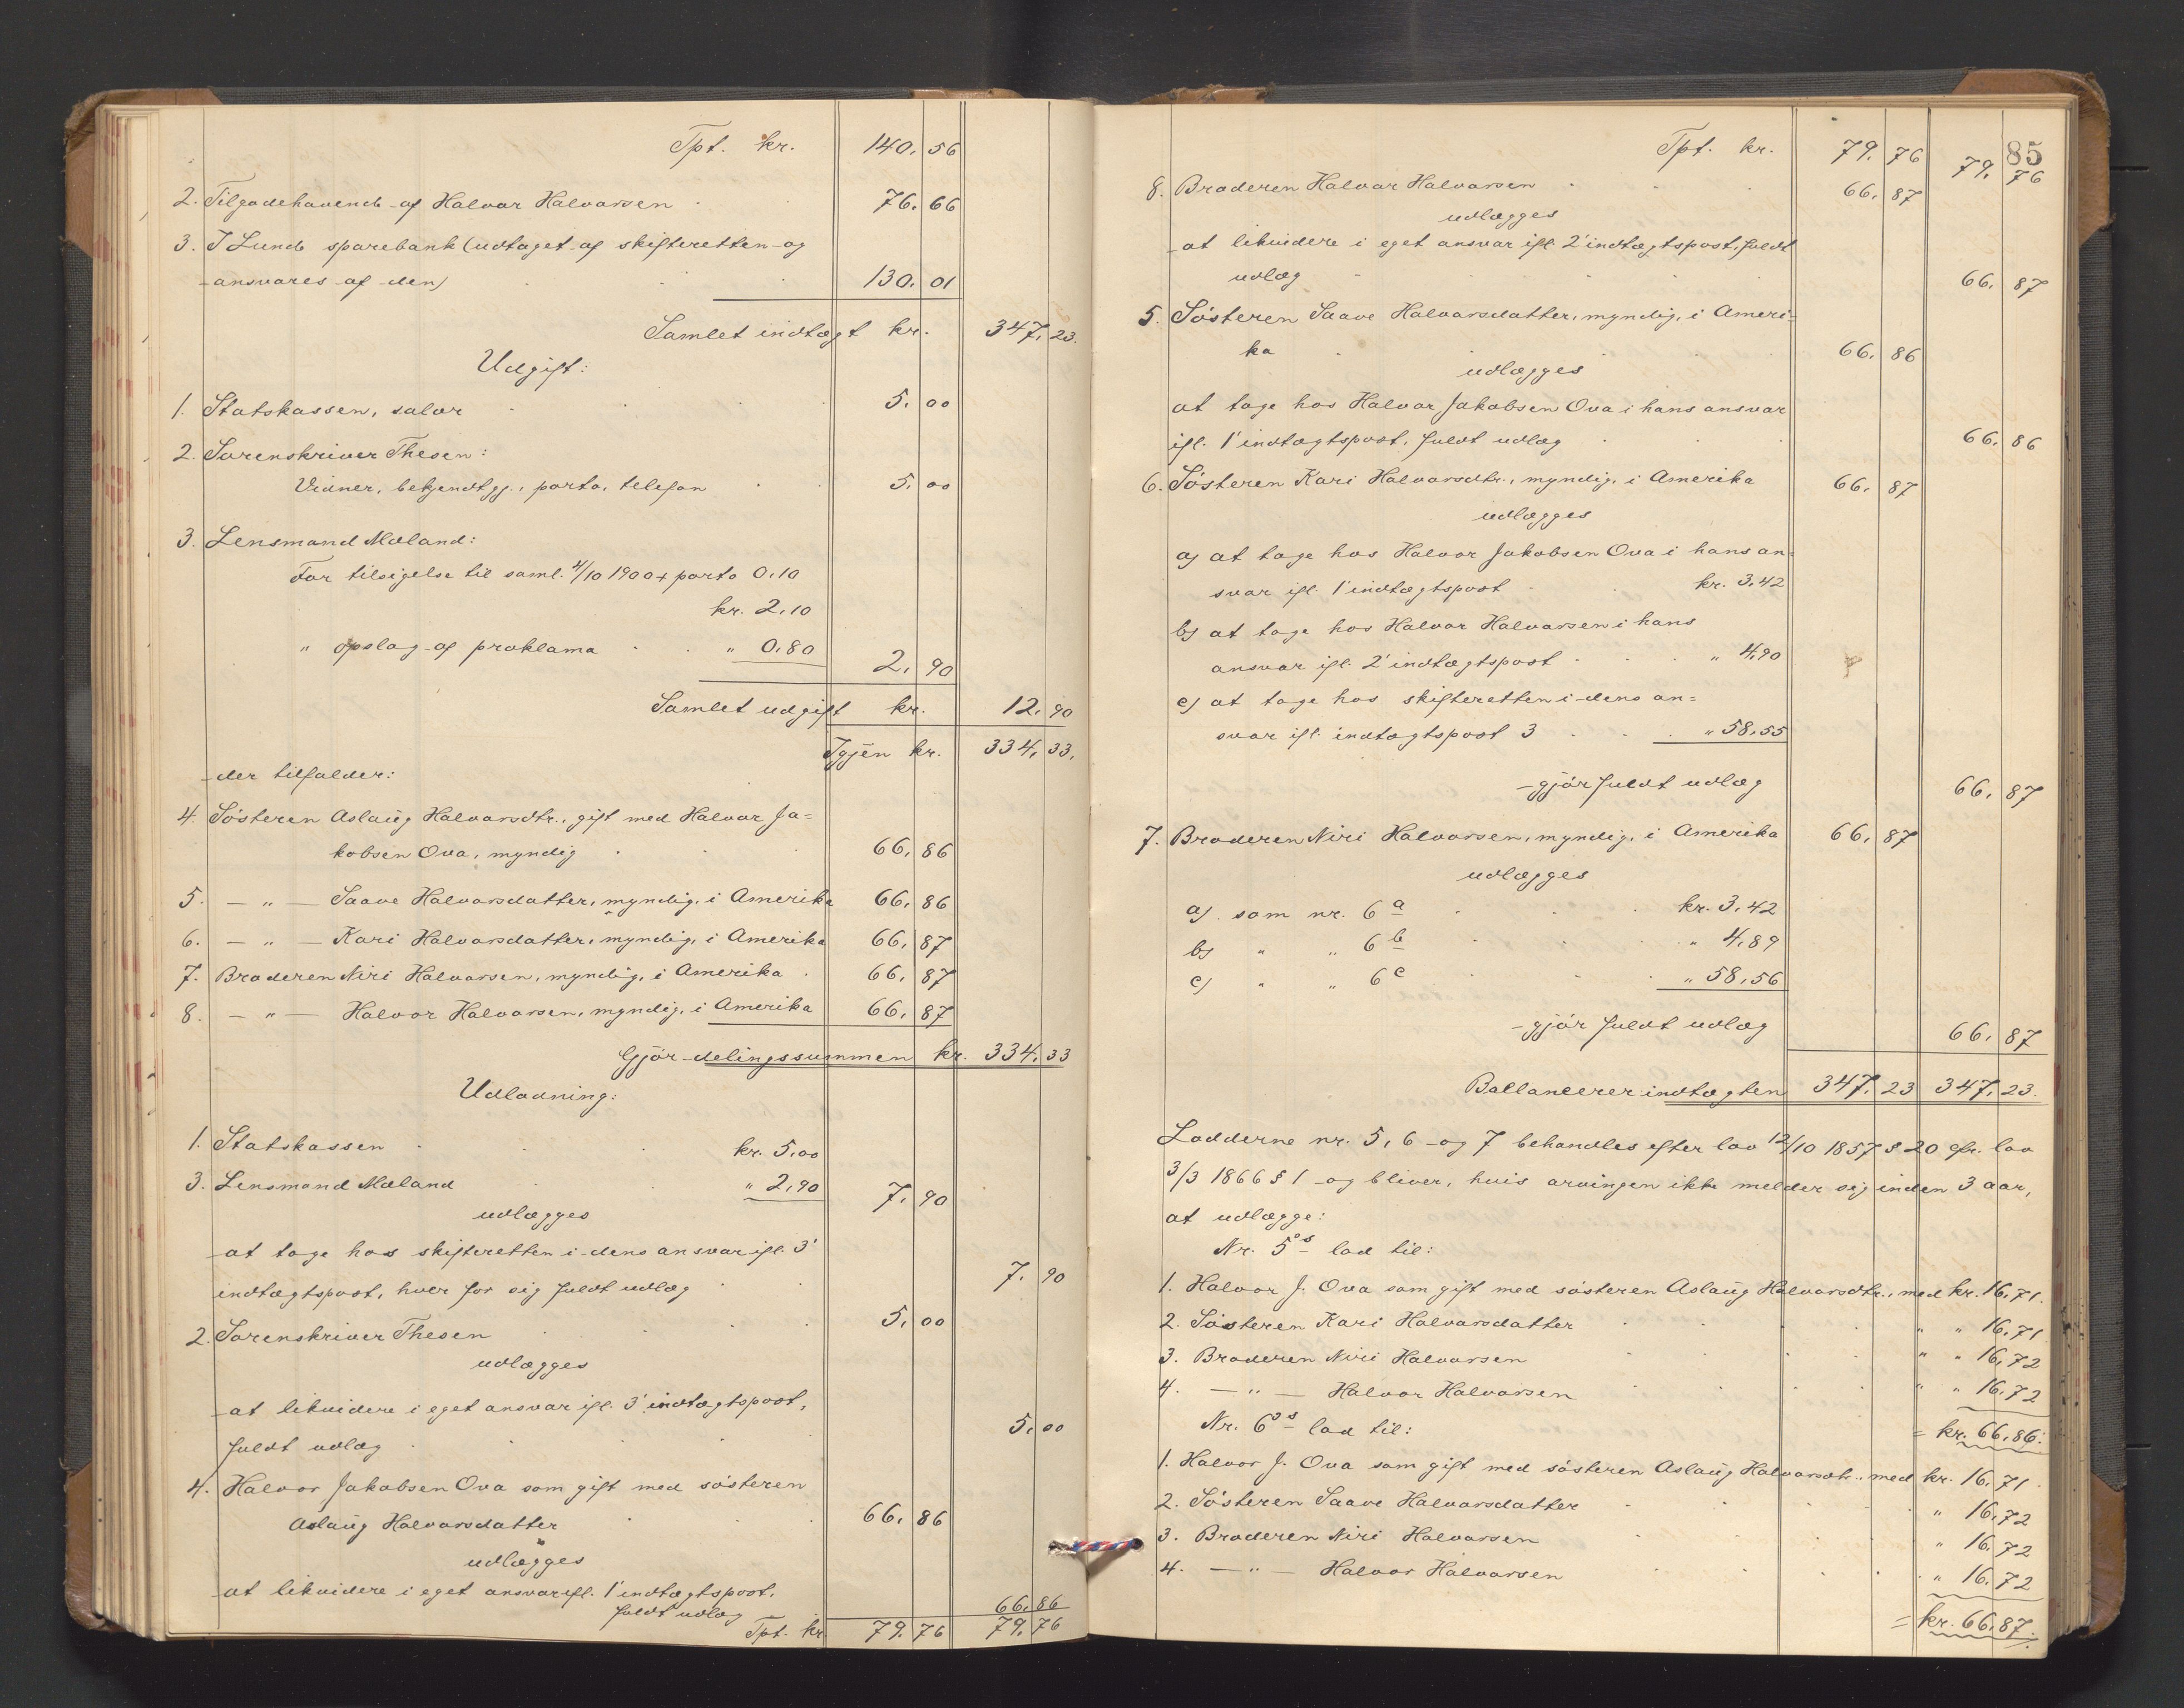 Tpt. kr. 140. 56
2. Tilgodehavende af Halvor Halvorsen 76. 66
3. I Lunde sparebank (udtaget af skifteretten og
ansvares af den) 130. 01
Samlet indtægt kr. 347. 23.
Udgift:
1. Statskassen, salær 5. 00
2. Sorenskriver Thesen:
Vidner, bekjendtgj., porto, telefon 5. 00
3. Lensmand Mæland:
For tilsigelse til saml. 4/10 1900 + porto 0,10
kr. 2,10
" opslag af proklama " 0,80 2. 90
Samlet udgift kr. 12. 90
Igjen kr. 334. 33.
der tilfalder:
4. Søsteren Aslaug Halvorsdtr., gift med Halvor Ja=
kobsen Ova, myndig 66. 86
5. — " — Saave Halvorsdatter, myndig, i Amerika 66. 86
6. — " — Kari Halvorsdatter, myndig, i Amerika 66. 87
7. Broderen Niri Halvorsen, myndig, i Amerika 66. 87
8. — " — Halvor Halvorsen, myndig, i Amerika 66. 87
Gjør delingssummen kr. 334. 33
Udlodning:
1. Statskassen kr. 5,00
3. Lensmand Mæland " 2,90 7. 90
udlægges
at tage hos skifteretten i dens ansvar ifl. 3'
indtægtspost, hver for sig fuldt udlæg 7. 90
2. Sorenskriver Thesen 5. 00
udlægges
at likvidere i eget ansvar ifl. 3' indtægtspost,
fuldt udlæg 5. 00
4. Halvor Jakobsen Ova som gift med søsteren
Aslaug Halvorsdatter 66. 86
udlægges
at likvidere i eget ansvar ifl. 1' indtægtspost,
fuldt udlæg 66. 86
Tpt. kr 79. 76 79. 76
85
Tpt. kr. 79. 76 79. 76
8. Broderen Halvor Halvorsen 66. 87
udlægges
at likvidere i eget ansvar ifl. 2' indtægtspost, fuldt
udlæg 66. 87
5. Søsteren Saave Halvorsdatter, myndig, i Ameri=
ka 66. 86
udlægges
at tage hos Halvor Jakobsen Ova i hans ansvar
ifl. 1' indtægtspost, fuldt udlæg 66. 86
6. Søsteren Kari Halvorsdtr., myndig, i Amerika 66. 87
udlægges
a) at tage hos Halvor Jakobsen Ova i hans an=
svar ifl. 1' indtægtspost kr. 3,42
b) at tage hos Halvor Halvorsen i hans
ansvar ifl. 2' indtægtspost " 4,90
c) at tage hos skifteretten i dens an=
svar ifl. indtægtspost 3 " 58,55
gjør fuldt udlæg 66. 87
7. Broderen Niri Halvorsen, myndig, i Amerika 66. 87
udlægges
a) som nr. 6 a kr. 3,42
b) " " 6 b " 4,89
c) " " 6 c " 58,56
gjør fuldt udlæg 66. 87
Ballancerer indtægten 347. 23 347. 23.
Lodderne nr. 5, 6 og 7 behandles efter lov 12/10 1857 § 20 cfr. lov
3/3 1866 § 1 og bliver, hvis arvingen ikke melder sig inden 3 aar,
at udlægge:
Nr. 5's lod til:
1. Halvor J. Ova som gift med søsteren Aslaug Halvorsdtr., med kr. 16,71.
2. Søsteren Kari Halvorsdatter " " 16,71
3. Broderen Niri Halvorsen " " 16,72
4. — " — Halvor Halvorsen " " 16,72
= kr. 66,86.
Nr. 6's lod til:
1. Halvor J. Ova som gift med søsteren Aslaug Halvorsdtr., med kr. 16,71
2. Søsteren Saave Halvorsdatter " 16,72
3. Broderen Niri Halvorsen " 16,72
4. — " — Halvor Halvorsen " 16,72
= kr. 66,87.